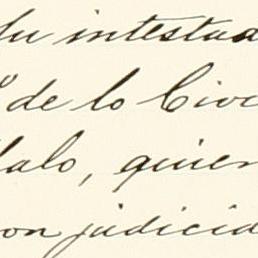 Su intestad
o de lo Civi
lalo, quien
on judicia